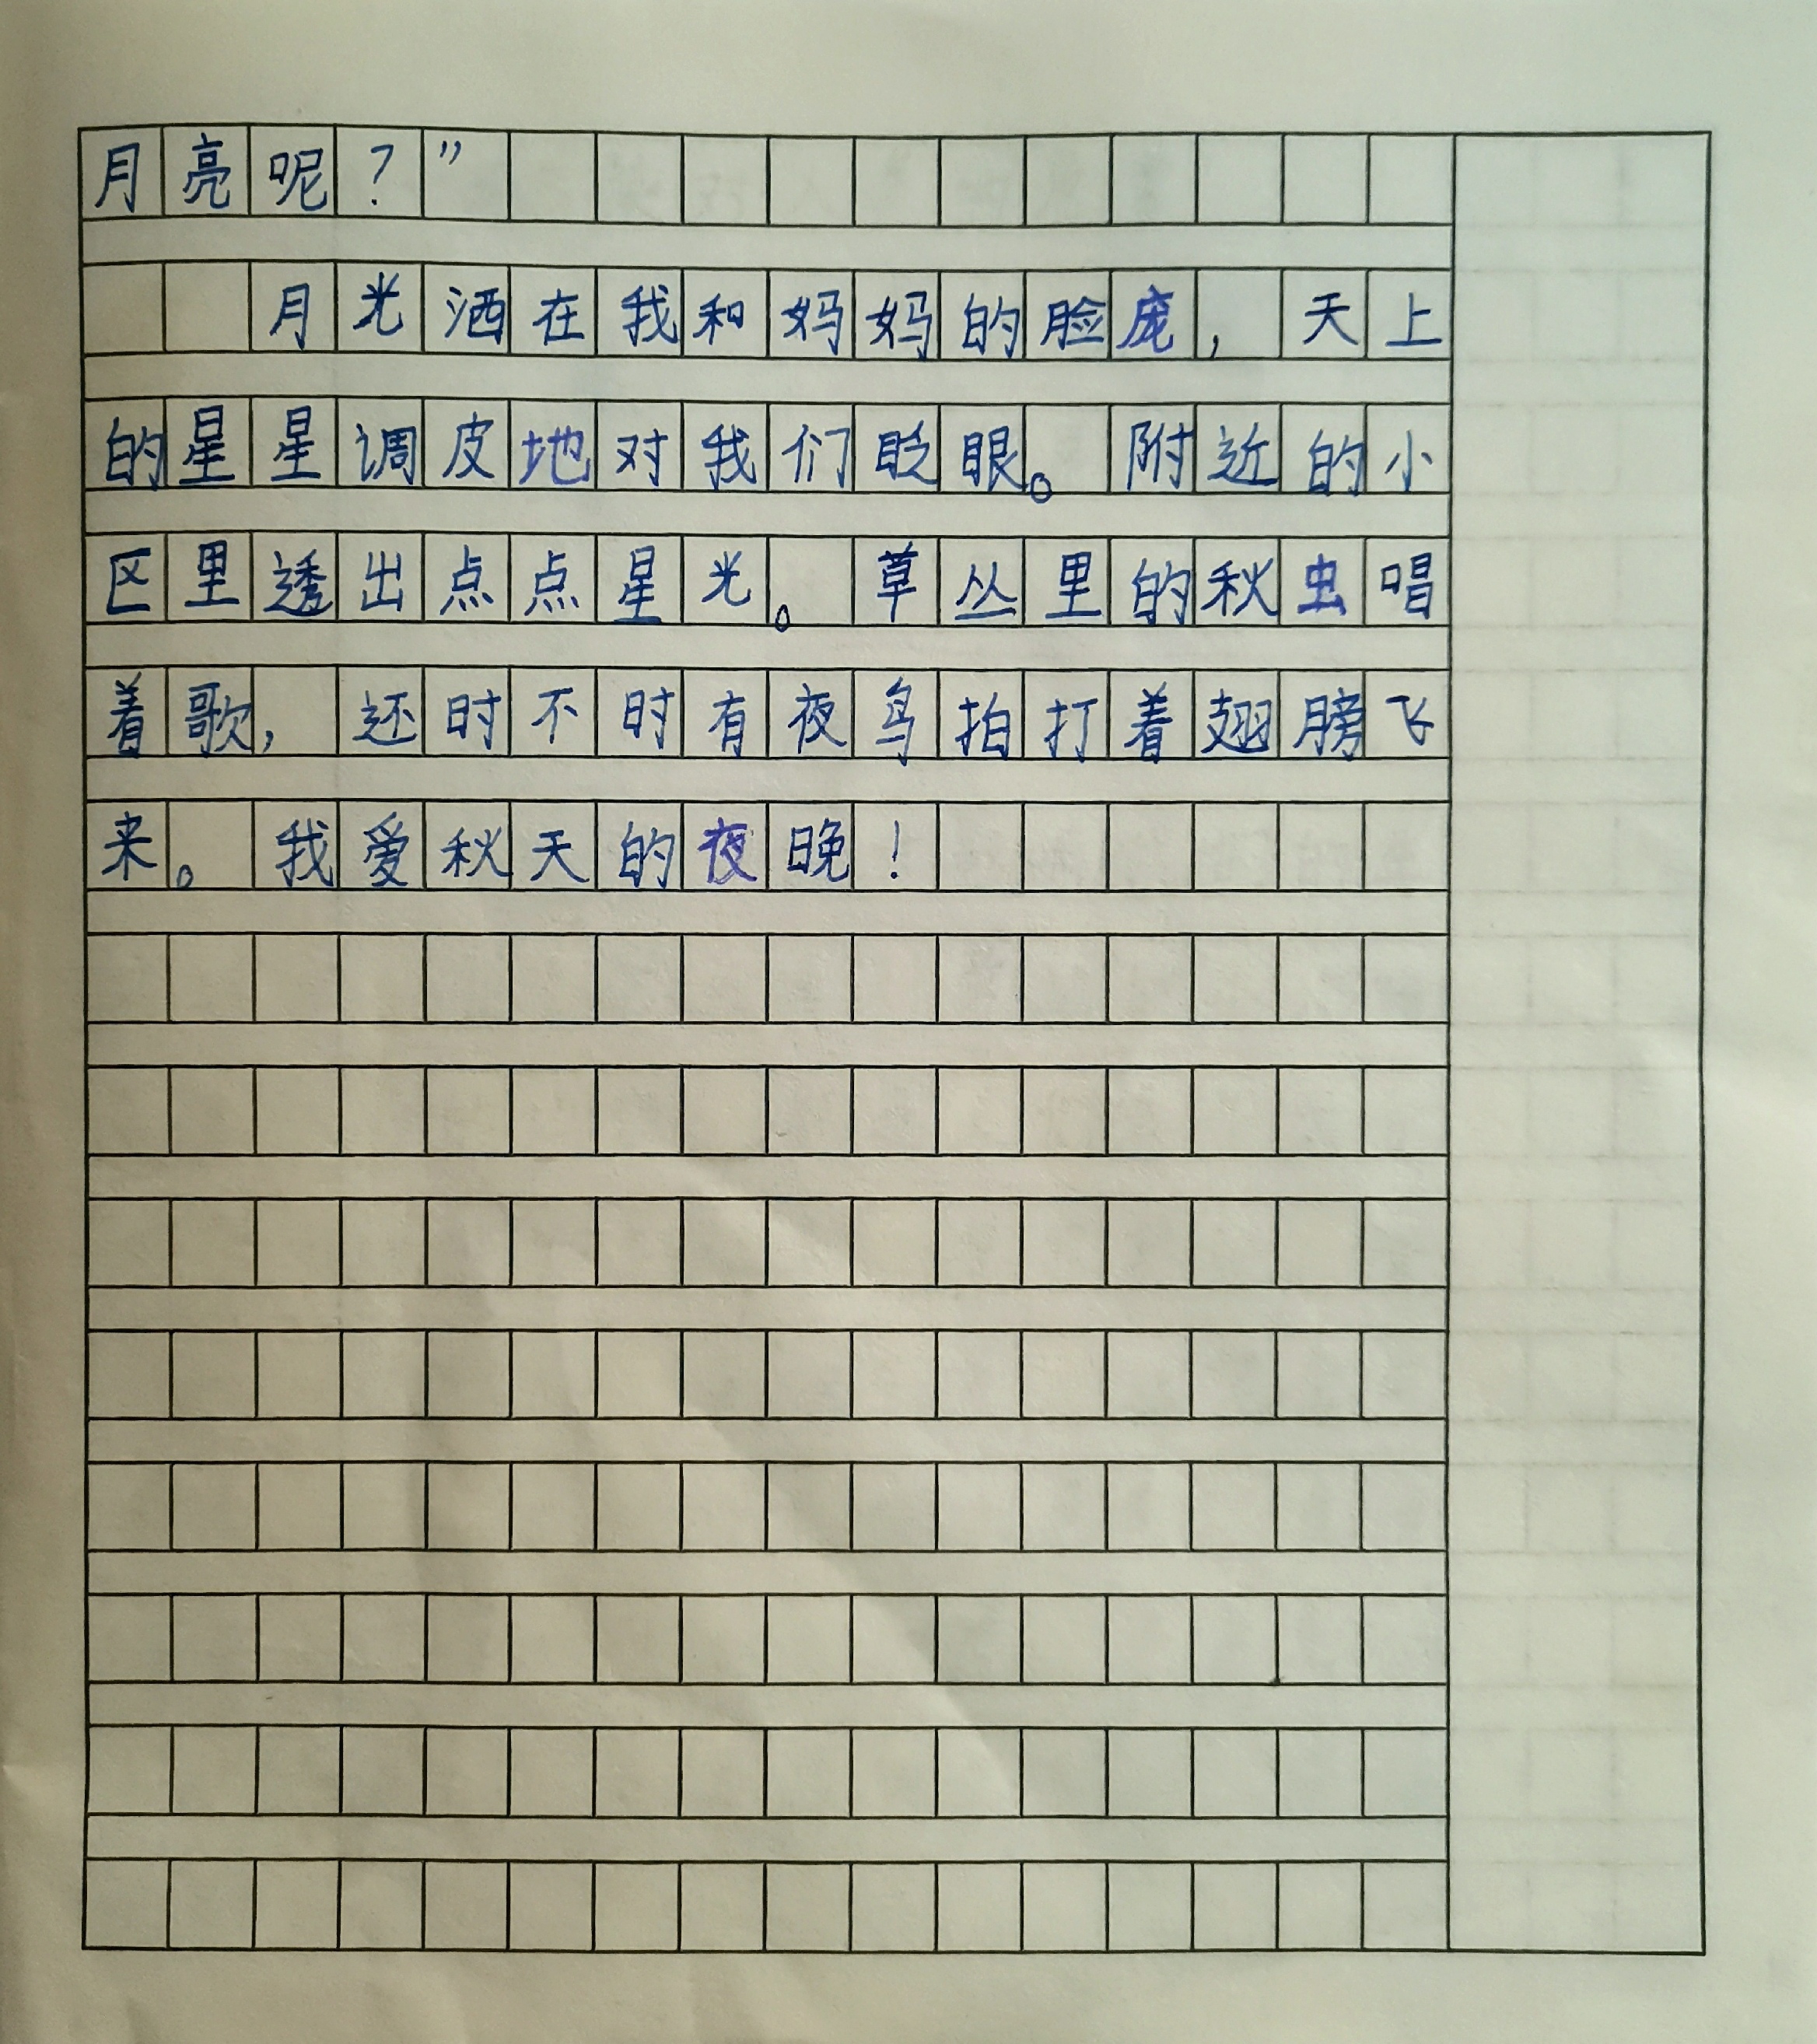 月亮呢？”
月光洒在我和妈妈的脸庞，天上
的星星调皮地对我们眨眼。附近的小
区里透出点点星光。草丛里的秋虫唱
着歌，还时不时有夜鸟拍打着翅膀飞
来。我爱秋天的夜晚！